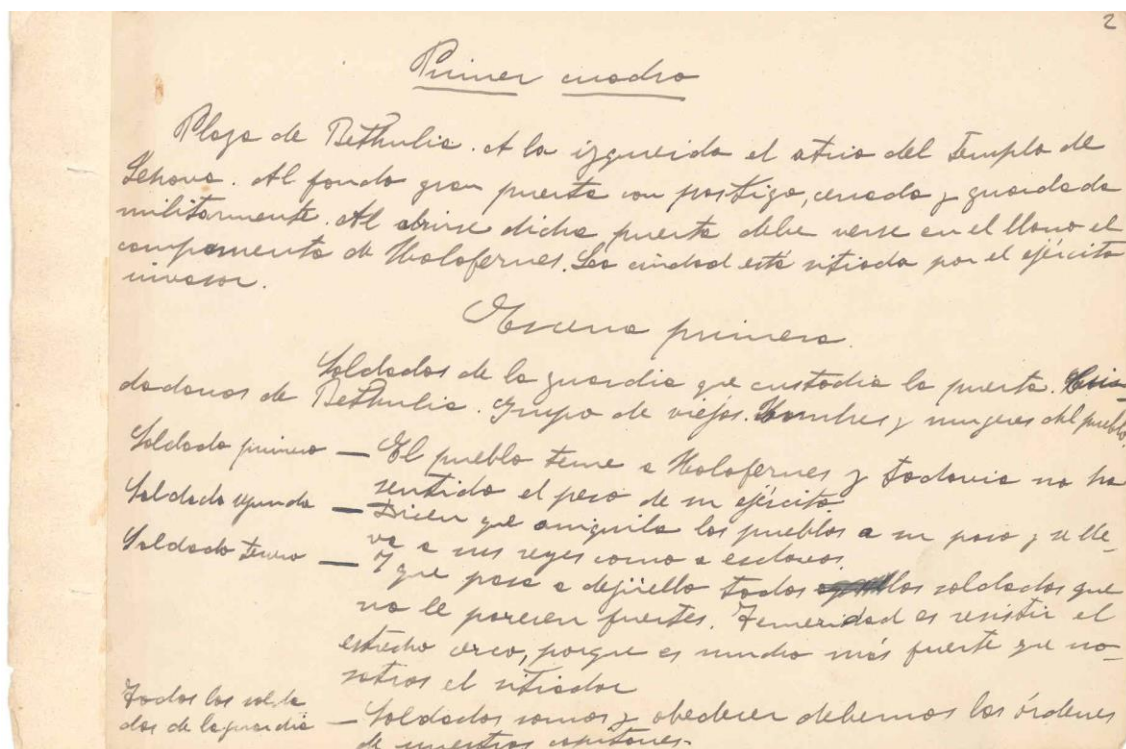 2
Primer cuadro
Plaza de Bethulia. A la izquierda el atrio del Templo de
Jehova. Al fondo gran puerta con postigo, cerrada y guardada
militarmente. Al abrirse dicha puerta debe verse en el llano el
campamento de Holofernes. La ciudad está sitiada por el ejército
invasor.
Escena primera.
Soldados de la guardia que custodia la puerta. Ciu-
dadanos de Bethulia. Grupo de viejos. Hombres y mujeres del pueblo.
Soldado primero — El pueblo teme a Holofernes y todavia no ha
sentido el peso de su ejército.
Soldado segundo — Dicen que aniquila los pueblos a su paso y se lle-
va a sus reyes como a esclavos.
Soldado tercero — Y que pasa a degüello todos los soldados que
no le parecen fuertes. Temeridad es resistir el
estrecho cerco, porque es mucho más fuerte que no-
sotros el sitiador
Todos los solda
dos de la guardia — Soldados somos y obedecer debemos las órdenes
de nuestros capitanes.